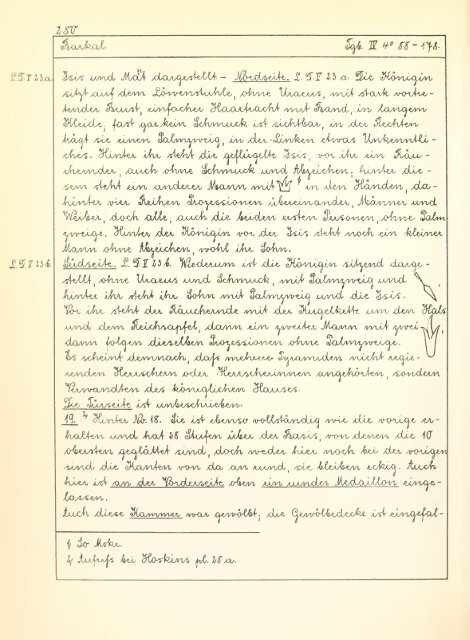 250
Barkal. Tgb. IV 4° 88-178.
L.D. V 23a. Isis und Mȧt dargestellt - Nordseite. L.D. V 23 a Die Königin
sitzt auf dem Löwenstuhle, ohne Uraeus, mit stark vortre-
tender Brust, einfacher Haartracht mit Band, in langem
Kleide; fast gar kein Schmuck ist sichtbar, in der Rechten
trägt sie einen Palmzweig, in der Linken etwas Unkenntli-
ches. Hinter ihr steht die geflügelte Isis, vor ihr ein Räu-
chernder, auch ohne Schmuck und Abzeichen; hinter die-
sem steht ein anderer Mann mit 1) in den Händen, da-
hinter vier Reihen Prozessionen übereinander, Männer und
Weiber, doch alle, auch die beiden ersten Personen, ohne Palm
zweige. Hinter der Königin vor der Isis steht noch ein kleiner
Mann ohne Abzeichen, wohl ihr Sohn.
L.D. V 23b. Südseite. L.D. V 23 b. Wiederum ist die Königin sitzend darge-
stellt, ohne Uraeus und Schmuck, mit Palmzweig und
hinter ihr steht ihr Sohn mit Palmzweig und die Isis.
Vor ihr steht der Räuchernde mit der Kugelkette um den Hals
und dem Reichsapfel, dann ein zweiter Mann mit zwei
dann folgen dieselben Prozessionen ohne Palmzweige.
Es scheint demnach, daſs mehrere Pyramiden nicht regie-
renden Herrschern oder Herrscherinnen angehörten, sondern
Verwandten des königlichen Hauses.
Die Türseite ist unbeschrieben.
19. 2) Hinter No. 18. Sie ist ebenso vollständig wie die vorige er-
halten und hat 38 Stufen über der Basis, von denen die 10
obersten geglättet sind, doch weder hier noch bei der vorigen
sind die Kanten von da an rund, sie bleiben eckig. Auch
hier ist an der Vorderseite oben ein rundes Medaillon einge-
lassen.
Auch diese Kammer war gewölbt; die Gewölbedecke ist eingefal-
1) So Mskr.
2) Aufriſs bei Hoskins pl. 28 a.